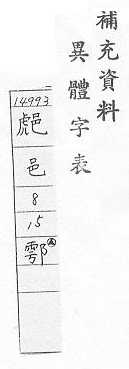 補充資料
異體字表
14993
邑
8
15
鄠